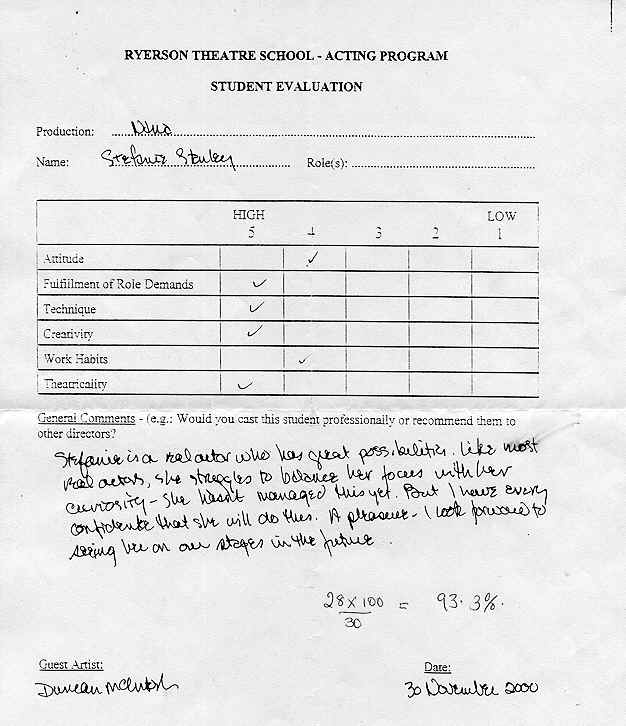 RYERSON THEATRE SCHOOL - ACTING PROGRAM
STUDENT EVALUATION
Production:
Name: Stefanie Stanley Role(s):
HIGH LOW
5 4 3 2 1
Attitude ✓
Fulfillment of Role Demands ✓
Technique ✓
Creativity ✓
Work Habits ✓
Theatricality ✓
General Comments - (e.g.: Would you cast this student professionally or recommend them to
other directors?
Stefanie is a real actor who has great possibilities. Like most
real actors, she struggles to balance her focus with her
curiosity - she hasn't managed this yet. But I have every
confidence that she will do this. A pleasure - I look forward to
seeing her on our stages in the future.
28 x 100 = 93.3%.
30
Guest Artist: Date:
Duncan McIntosh 30 November 2000